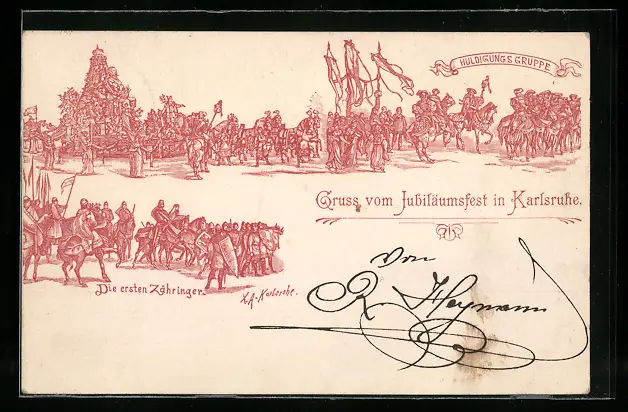 HULDIGUNGSGRUPPE
Gruss vom Jubiläumsfest in Karlsruhe.
Die ersten Zähringer.
X.A. Karlsruhe.
von
R. Heymann